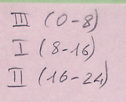 III (0-8)
I (8-16)
II (16-24)